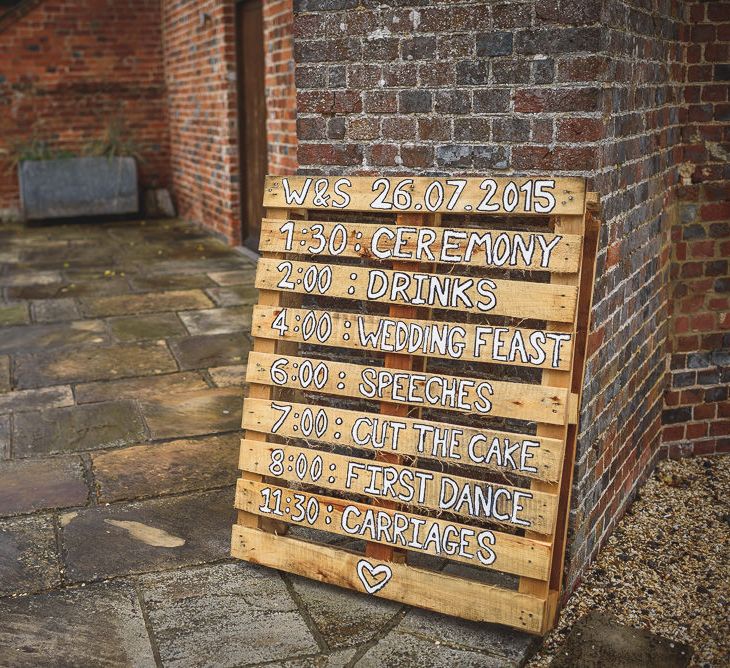 W&S 26.07.2015
1:30 : CEREMONY
2:00 : DRINKS
4:00 : WEDDING FEAST
6:00 : SPEECHES
7:00 : CUT THE CAKE
8:00 : FIRST DANCE
11:30 : CARRIAGES